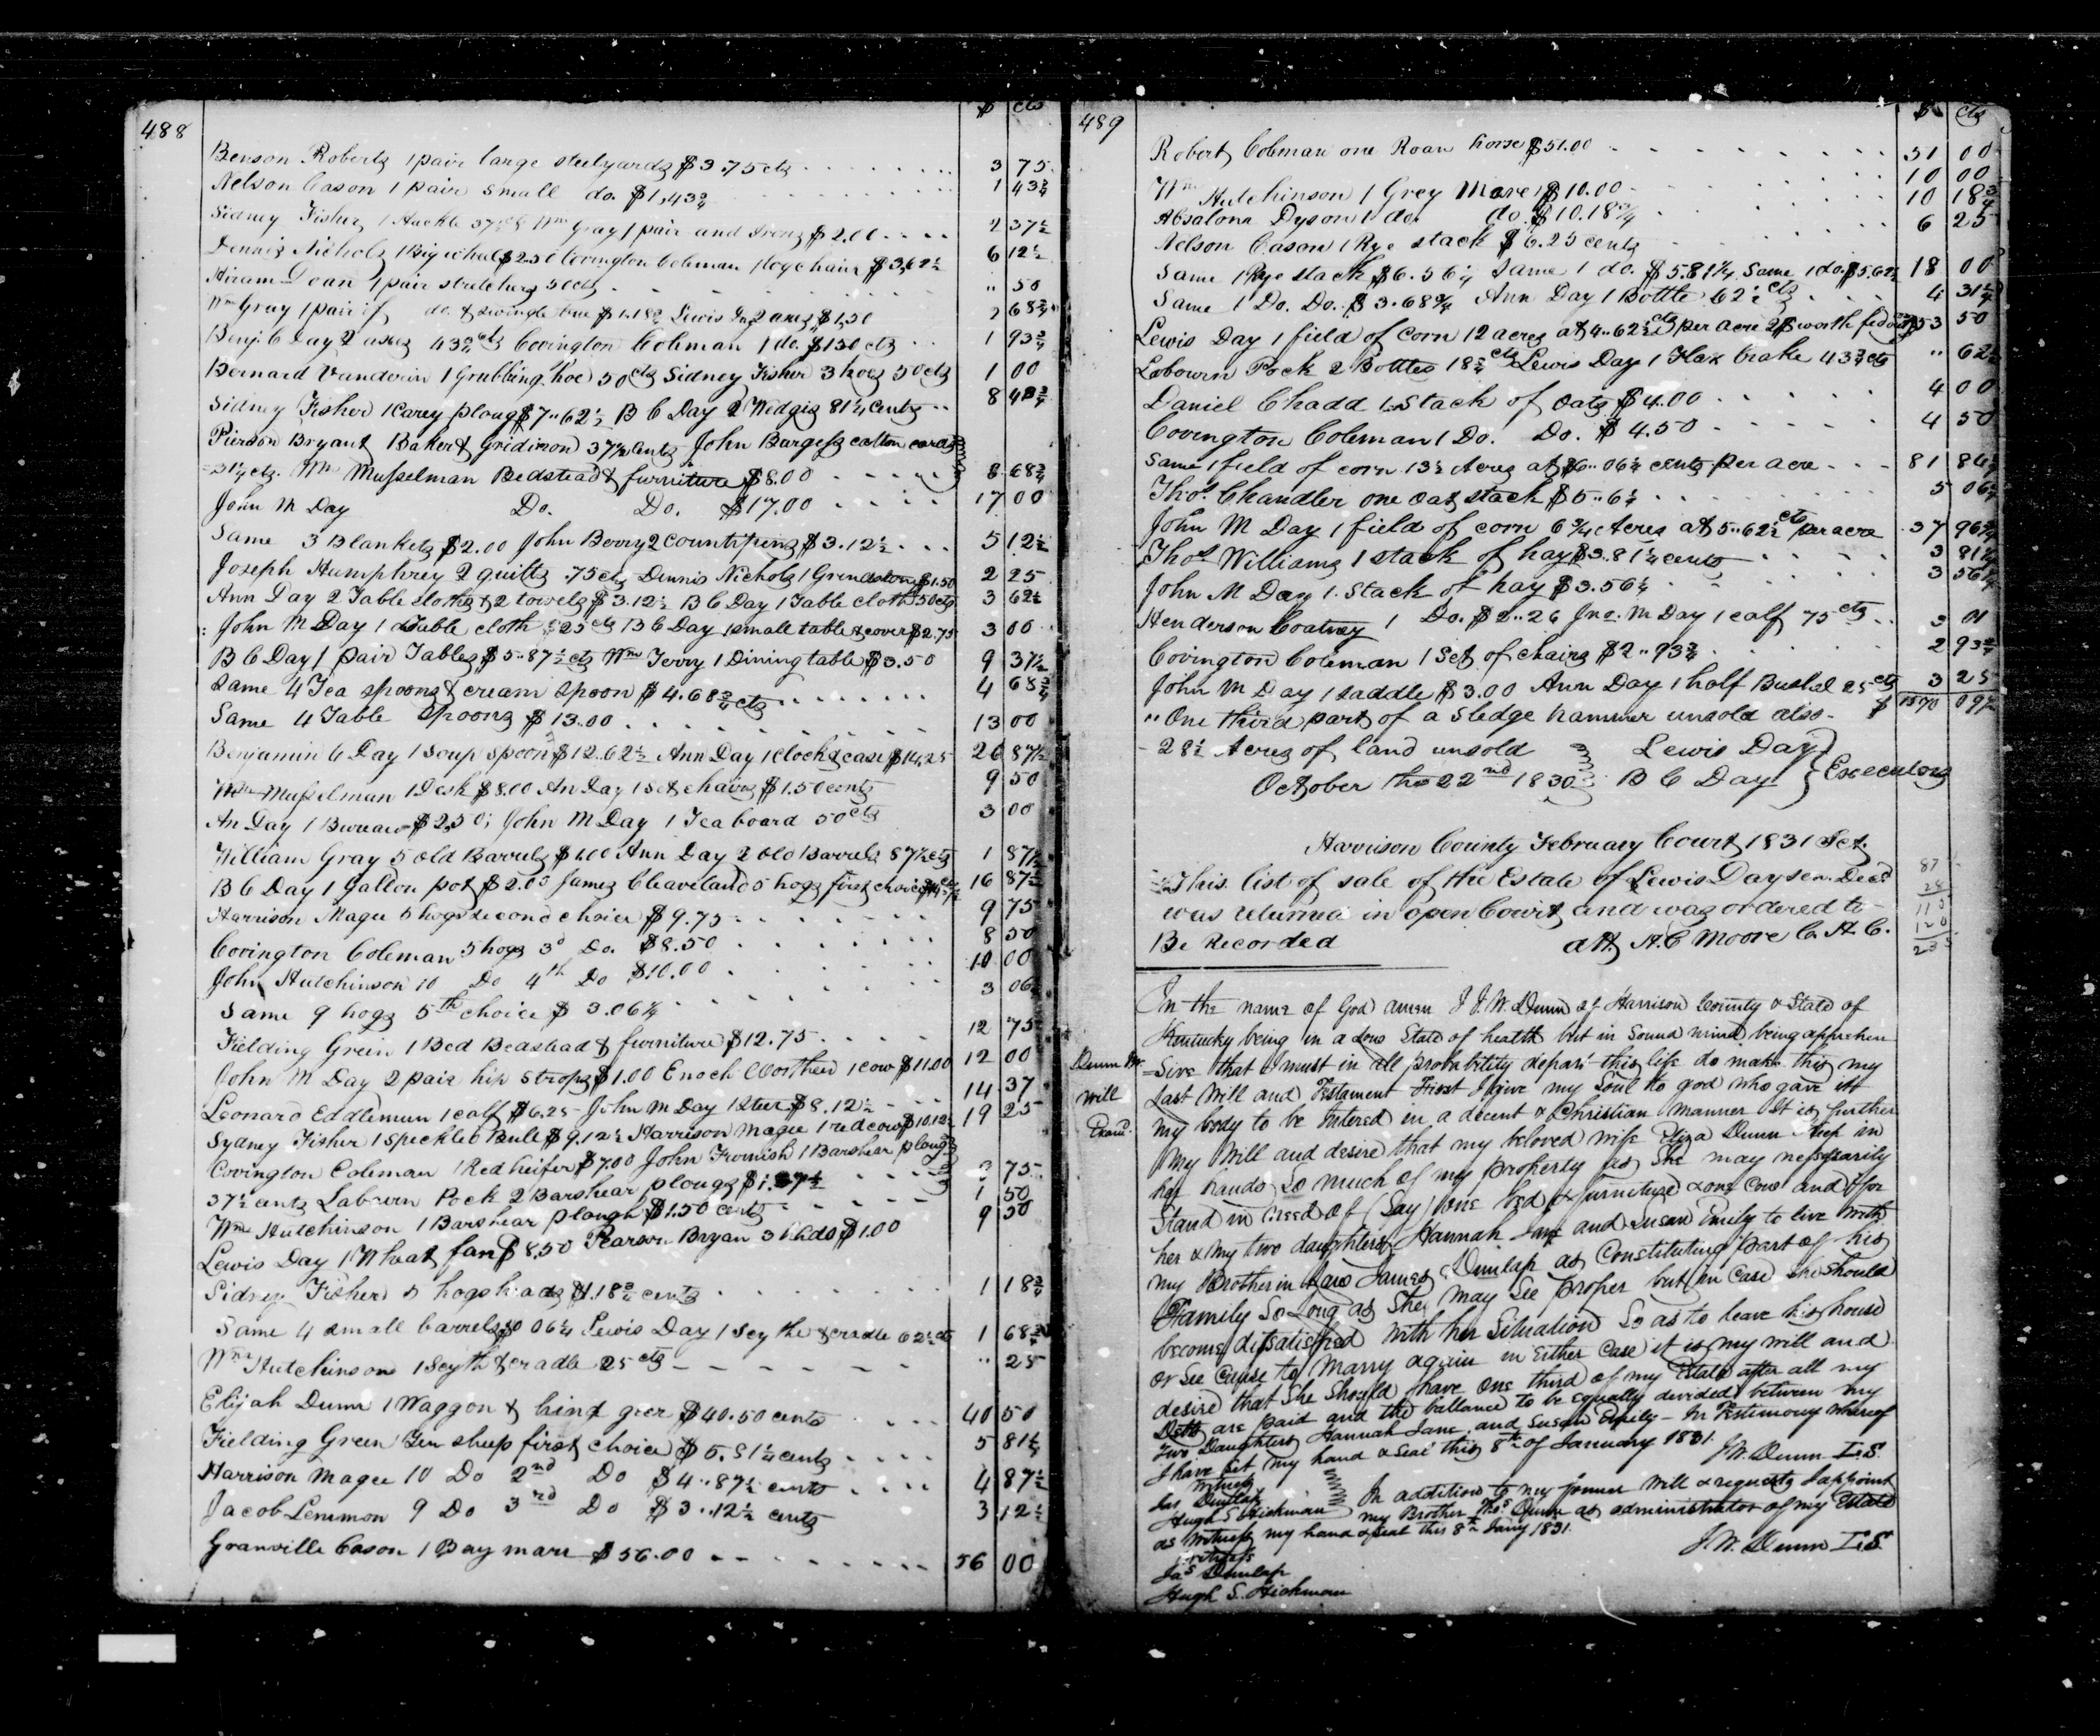 488
$ cts
Benson Roberts 1 pair large steelyards $3.75 cts 3 75
Nelson Cason 1 pair small do. $1,43¾ 1 43¾
Sidney Fisher 1 Hackle 37½ cts Wm Gray 1 pair and Irons $2.00 2 37½
Dennis Nichols 1 Big wheel $2.50 Covington Coleman 1 logchain $3,62½ 6 12½
Hiram Doan 1 pair stretchers 50 cts " 50
Wm Gray 1 pair of do. & swingle tree $1.18¾ Lewis Day 2 axes $1,50 2 68¾
Benj. C Day 2 axes 43¾ cts Covington Coleman 1 do. $1.50 cts 1 93¾
Bernard Vanderin 1 Grubbing hoe 50 cts Sidney Fisher 3 hoes 50 cts 1 00
Sidney Fisher 1 Carey ploug $7..62½ B C Day 2 Wedgis 81¼ Cents 8 43¾
Pierson Bryant Baker & Gridiron 37½ Cents John Burgess cotton cards
31¼ cts. Wm Musselman Bedstead & furniture $8.00 8 68¾
John M Day Do. Do. $17.00 17 00
Same 3 Blankets $2.00 John Berry 2 Countripins $3.12½ 5 12½
Joseph Humphrey 2 quilts .75 cts Dennis Nichols 1 Grindston $1.50 2 25
Ann Day 2 Table cloths & 2 towels $3.12½ B C Day 1 Table cloth 50 cts 3 62½
John M Day 1 Table cloth 25 cts B C Day 1 small table & cover $2.75 3 00
B C Day 1 pair Tables $5..87½ cts Wm Terry 1 Dining table $3.50 9 37½
Same 4 Tea spoons & cream spoon $4.68¾ cts 4 68¾
Same 4 Table Spoons $13.00 13 00
Benjamin C Day 1 soup spoon $12.62½ Ann Day 1 clock & case $14,25 26 87½
Wm Musselman 1 Desk $8.00 An Day 1 set chairs $1.50 cents 9 50
An Day 1 Bureau $2,50; John M Day 1 Tea board 50 cts 3 00
William Gray 5 old Barrels $1.00 Ann Day 2 old Barrels 87½ cts 1 87½
B C Day 1 Gallon pot $2.00 James Cleaveland 5 hogs first choice 16 87½
Harrison Magee 5 hogs second choice $9.75 9 75
Covington Coleman 5 hogs 3d Do. $8.50 8 50
John Hutchinson 10 Do 4th Do $10.00 10 00
Same 9 hogs 5th choice $3.06¼ 3 06¼
Fielding Grein 1 Bed Beastead & furniture $12.75 12 75
John M Day 2 pair hip straps $1.00 Enoch Worthen 1 cow $11.00 12 00
Leonard Eddlemun 1 calf $6.25 John M Day 1 Steer $8.12½ 14 37
Sydney Fisher 1 speckled Bull $9.12½ Harrison Magee 1 red cow $10.12½ 19 25
Covington Coleman 1 Red heifer $7.00 John Furnish 1 Barshear ploug
37½ cents Labourn Pock 2 Barshear plougs $1.37½ 75
Wm Hutchinson 1 Barshear plough $1.50 cents 1 50
Lewis Day 1 Wheat fan $8.50 Pearson Bryan 3 hhds $1.00 9 50
Sidney Fisher 5 hogsheads $1.18¾ cents 1 18¾
Same 4 small barrels $0 06¼ Lewis Day 1 Scythe & cradle 62½ cts 1 68¾
Wm Hutchinson 1 Scyth & cradle 25 cts " 25
Elijah Dunn 1 Waggon & hind geer $40.50 cents 40 50
Fielding Green Ten sheep first choice $5.81¼ cents 5 81¼
Harrison Magee 10 Do 2nd Do $4..87½ cents 4 87½
Jacob Lemmon 9 Do 3rd Do $3..12½ cents 3 12½
Granville Cason 1 Bay mare $56.00 56 00
489
$ cts
Robert Coleman one Roan horse $51.00 51 00
Wm Hutchinson 1 Grey Mare $10.00 10 00
Absalom Dyson 1 do. do. $10.18¾ 10 18¾
Nelson Cason 1 Rye stack $6.25 cents 6 25
Same 1 Rye stack $6.56¼ Same 1 do. $5.81¼ Same 1 do. $5.62½ 18 00
Same 1 Do. Do. $3.68¾ Ann Day 1 Bottle 62½ cts 4 31¼
Lewis Day 1 field of Corn 12 acres at 4..62½ cts per acre 2$ worth fed out 53 50
Labourn Pock 2 Bottles 18¾ cts Lewis Day 1 Flax brake 43¾ cts " 62½
Daniel Chadd 1 Stack of Oats $4.00 4 00
Covington Coleman 1 Do. Do. $4.50 4 50
Same 1 field of corn 13½ Acres at $6..06¼ cents per acre 81 84¼
Thos. Chandler one Oat stack $5..6¼ 5 06¼
John M Day 1 field of corn 6¾ Acres at 5..62½ cts per acre 37 96¾
Thos Williams 1 stack of hay $3.81¼ cents 3 81¼
John M Day 1 Stack of hay $3.56¼ 3 56¼
Henderson Coatney 1 Do. $2..26 Jno. M Day 1 calf 75 cts 3 01
Covington Coleman 1 Set of chairs $2..93¾ 2 93¾
John M Day 1 saddle $3.00 Ann Day 1 half Bushel 25 cts 3 25
"One third part of a Sledge hammer unsold also $ 1570 09½
28½ Acres of land unsold Lewis Day
October the 22nd 1830 B C Day } Executors
Harrison County February Court 1831 Sct.
This list of sale of the Estate of Lewis Day sen. Decd
was returned in open Court and was ordered to
Be Recorded att H. C Moore C. H. C.
87
28
115
120
235
In the name of God amen I J. W. Dunn of Harrison County & State of
Kentucky being in a low State of health but in Sound mind being apprehen
Dunn
Will
Exam.
=sive that I must in all probability depart this life do make this my
Last Will and Testament First I give my Soul to god who gave it
my body to be Intered in a decent & Christian manner It is further
My Will and desire that my beloved wife Eliza Dunn Keep in
her hands So much of my property as She may nessarily
Stand in need of (Say) one bed & furniture & one Cow and for
her & my two daughters Hannah Jane and Susan Emily to live with
my Brother in Law James Dunlap as Constituting part of his
Family So Long as She may See proper but in Case she should
become dissatisfied with her Situation So as to leave his house
or See Cause to Marry again in Either Case it is my will and
desire that She Should have One third of my Estate after all my
Debts are paid and the ballance to be equally devided between my
two Daughters Hannah Jane and Susan Emily - In Testimony whereof
I have Set my hand & Seal this 8th of January 1831. J. W. Dunn L.S.
witness
Jas Dunlap
Hugh S. Hickman
In addition to my former Will & requests I appoint
my Brother Thos Dunn as administrator of my Estate
as Witness my hand & seal this 8th Jany 1831.
J. W. Dunn L.S.
witness
Jas Dunlap
Hugh S. Hickman